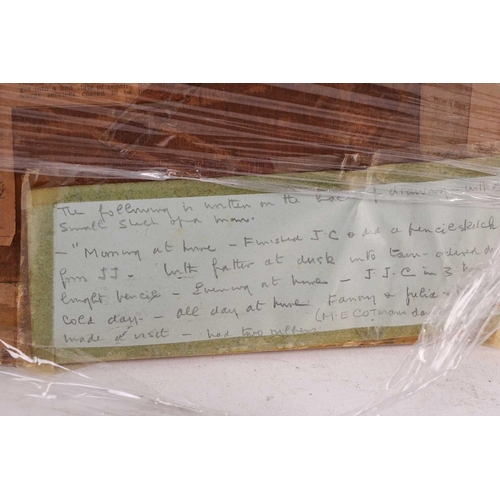 The following is written on the back of drawing with
small sketch of a man.
— "Morning at home — Finished J C & did a pencil sketch
from JJ. With father at dusk into town - ordered
bought pencils — Evening at home — J.J.C in 3
cold day - all day at home Fanny & felix
made a visit — had two
(M.E COTman